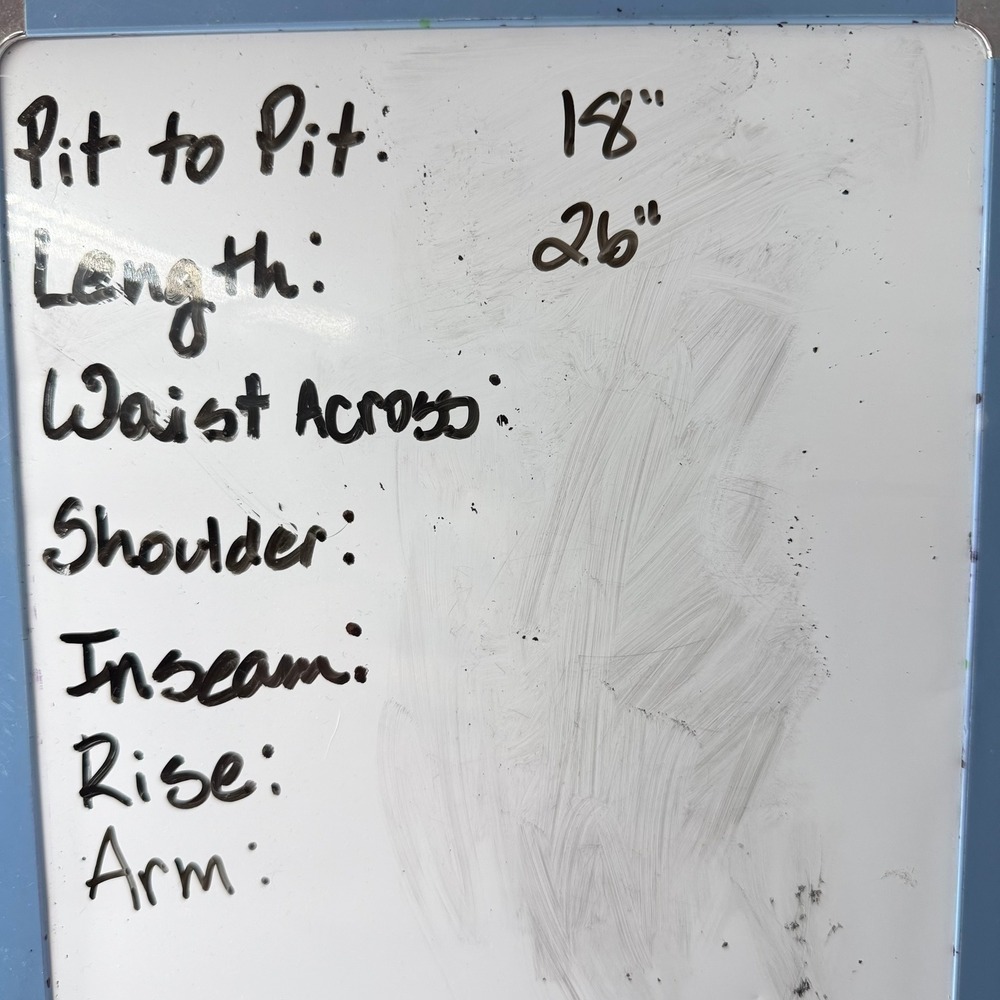 Pit to Pit: 18"
Length: 26"
Waist Across:
Shoulder:
Inseam:
Rise:
Arm: